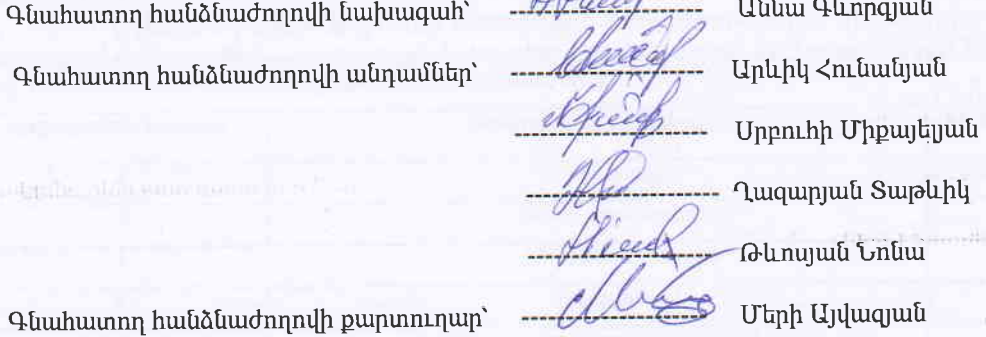 Գնահատող հանձնաժողովի նախագահ՝ Աննա Գևորգյան
Գնահատող հանձնաժողովի անդամներ՝ Արևիկ Հունանյան
Սրբուհի Միքայելյան
Ղազարյան Տաթևիկ
Թևոսյան Նոնա
Գնահատող հանձնաժողովի քարտուղար՝ Մերի Այվազյան